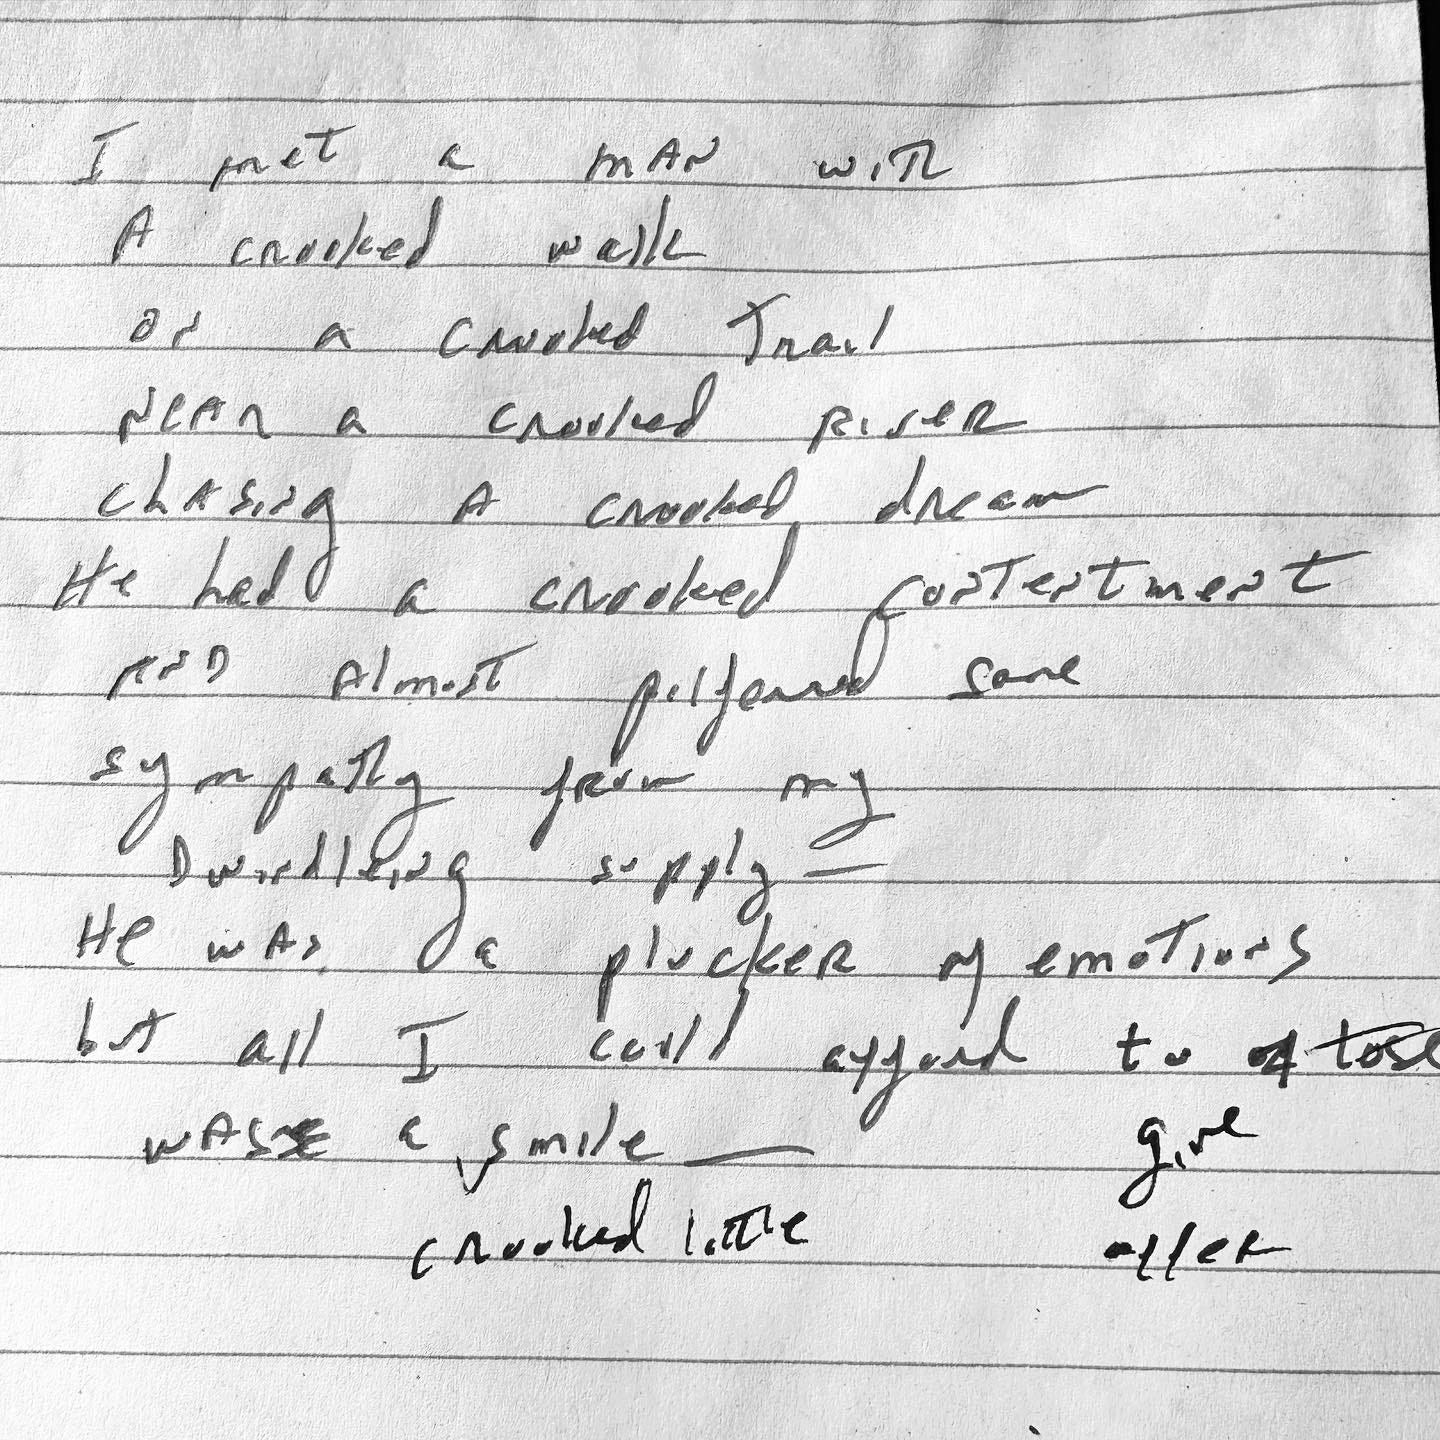 I met a man with
A crooked walk
on a crooked Trail
Near a crooked River
chasing A crooked dream
He had a crooked contentment
AND Almost pilferred some
sympathy from my
Dwindleing supply —
He was a plucker of emotions
but all I could afford to
was a smile — give
crooked little offer